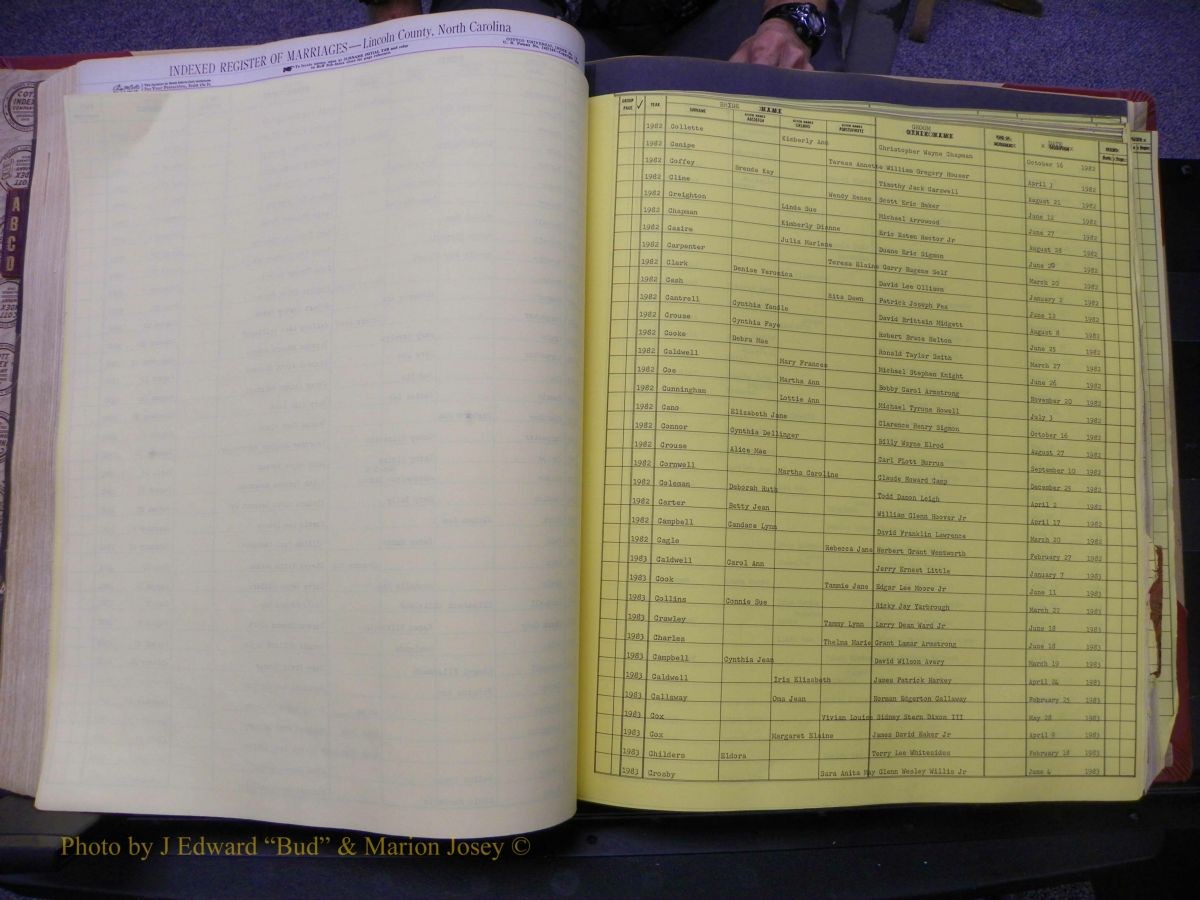 INDEXED REGISTER OF MARRIAGES—Lincoln County, North Carolina
A B C D
GROUP PAGE YEAR SURNAME BRIDE NAME GROOM
1982 Collette Kimberly Ann Christopher Wayne Chapman October 16 1982
1982 Canipe Teresa Annette William Gregory Houser April 3 1982
1982 Coffey Brenda Kay Timothy Jack Carswell August 21 1982
1982 Cline Wendy Renee Scott Eric Baker June 12 1982
1982 Creighton Linda Sue Michael Arrowood June 27 1982
1982 Chapman Kimberly Dianne Eric Esten Hector Jr August 28 1982
1982 Cazire Julia Marlene Duane Eric Sigmon June 29 1982
1982 Carpenter Teresa Elaine Garry Eugene Self March 20 1982
1982 Clark Denise Veronica David Lee Ollison January 2 1982
1982 Cash Rita Dawn Patrick Joseph Fex June 12 1982
1982 Cantrell Cynthia Yandle David Brittain Midgett August 8 1982
1982 Crouse Cynthia Faye Robert Bruce Helton June 25 1982
1982 Cooke Debra Mae Ronald Taylor Smith March 27 1982
1982 Caldwell Mary Frances Michael Stephen Knight June 26 1982
1982 Coe Martha Ann Bobby Carol Armstrong November 20 1982
1982 Cunningham Lottie Ann Michael Tyrone Howell July 3 1982
1982 Cano Elizabeth Jane Clarence Henry Sigmon October 16 1982
1982 Connor Cynthia Dellinger Billy Wayne Elrod August 27 1982
1982 Crouse Alice Mae Carl Plott Burrus September 10 1982
1982 Cornwell Martha Caroline Claude Howard Camp December 25 1982
1982 Coleman Deborah Ruth Todd Damon Leigh April 2 1982
1982 Carter Betty Jean William Glenn Hoover Jr April 17 1982
1982 Campbell Candace Lynn David Franklin Lawrence March 20 1982
1982 Cagle Rebecca Jane Herbert Grant Wentworth February 27 1982
1983 Caldwell Carol Ann Jerry Ernest Little January 7 1983
1983 Cook Tammie Jane Edgar Lee Moore Jr June 11 1983
1983 Collins Connie Sue Ricky Jay Yarbrough March 22 1983
1983 Crawley Tammy Lynn Larry Dean Ward Jr June 18 1983
1983 Charles Thelma Marie Grant Lamar Armstrong June 18 1983
1983 Campbell Cynthia Jean David Wilson Avery March 19 1983
1983 Caldwell Iris Elizabeth James Patrick Harkey April 24 1983
1983 Callaway Ona Jean Norman Edgerton Callaway February 25 1983
1983 Cox Vivian Louise Sidney Stern Dixon III May 28 1983
1983 Cox Margaret Elaine James David Eaker Jr April 9 1983
1983 Childers Eldora Terry Lee Whitesides February 18 1983
1983 Crosby Sara Anita May Glenn Wesley Willis Jr June 4 1983
Photo by J Edward “Bud” & Marion Josey ©